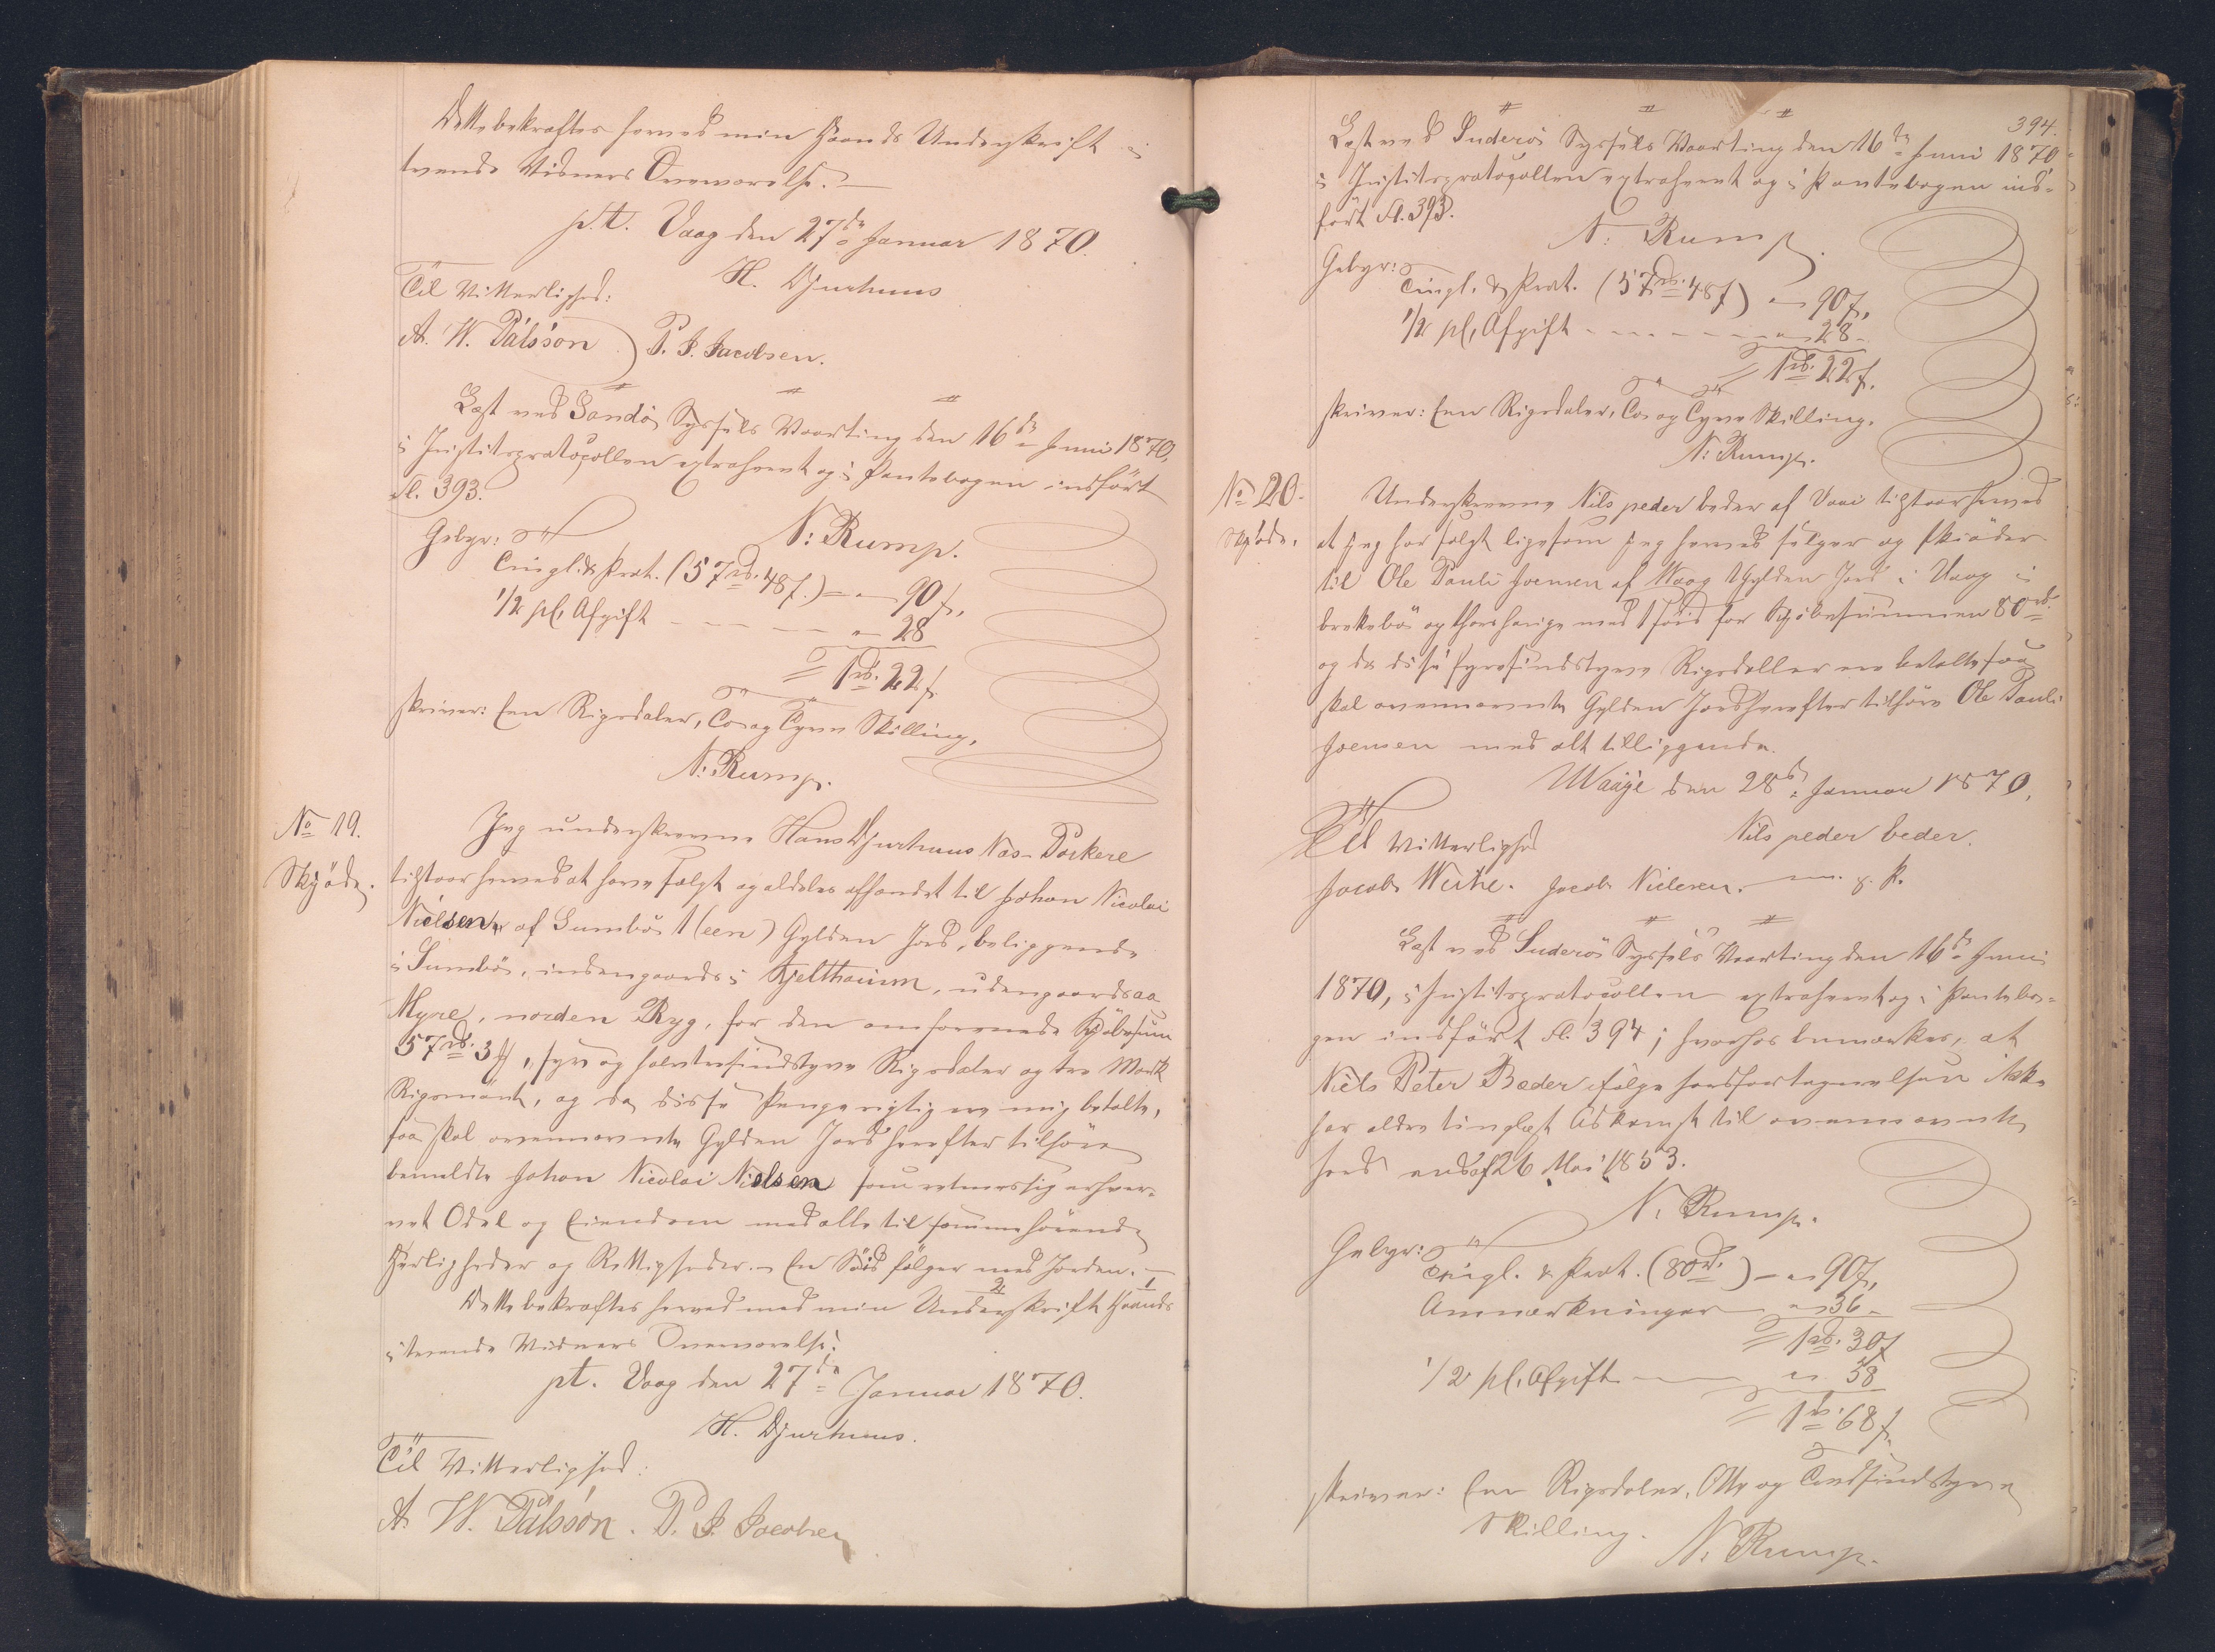 Dette bekræftes herved min Haands Underskrift i
tvende Vidners Overværelse. —
p.t. Vaag den 27de Januar 1870.
H. Djurhuus
Til Vitterlighed:
A. W. Pálsson P. J. Jacobsen.
Læst ved Sandö Syssels Vaarting den 16de Juni 1870,
i Justitsprotocollen extraheret og i Pantebogen indført
Fl. 393.
N: Rump.
Gebyr:
Tingl. & Prot. (57rd. 48ſ.) — " 90ſ,
1/2 pCt. Afgift - - - - " 28
= 1rd. 22ſ.
skriver: Een Rigsdaler, To og Tyve Skilling,
N: Rump.
No 19.
Skjöde.
Jeg underskrevne Hans Djurhuus Næs Porkere
tilstaar herved at have solgt og aldeles afhændet til Johan Nicolai
Nielsen af Sumbö 1 (een) Gylden Jord, beliggende
i Sumbö, indengaards i Kjelthaium, udengaards aa
Myre, norden Ryg, for den omforenede Kjöbesum
57rd. 3 Mk, syv og halvtresindstyve Rigsdaler og tre Mark
Rigsmönt, og da disse Penge rigtig ere mig betalte,
saa skal ovennævnte Gylden Jord herefter tilhöre
bemeldte Johan Nicolai Nielsen som retmæssig erhver-
vet Odel og Eiendom med alle til sammehörende
Herligheder og Rettigheder. — En Söid fölger med Jorden. —
Dette bekræftes herved med min Underskrift Haands
i tvende Vidners Overværelse.
pt. Vaag den 27de Januar 1870.
H. Djurhuus.
Til Vitterlighed:
A. W. Pálsson. P. J. Jacobsen
394.
Læst ved Suderö Syssels Vaarting den 16de Juni 1870
i Justitsprotocollen extraheret og i Pantebogen ind-
fört Fl. 393.
N: Rump.
Gebyr:
Tingl. & Prot. (57rd. 48ſ) — 90ſ,
1/2 pCt. Afgift - - - - - - " 28 -
= 1rd. 22ſ.
skriver: Een Rigsdaler, To og Tyve Skilling.
N: Rump.
No 20.
Skjöde.
Underskrevne Nils peder beder af Vaai tilstaar herved
at jeg har solgt ligesom jeg herved sælger og skiöder
til Ole Pauli Joensen af Waag 1 Gylden Jord i Vaag i
brekebö og med 1 söid for Kjöbesummen 80rd.
og da disse fyresindstyve Rigsdaller ere betalte saa
skal ovennævnte Gylden Jord herefter tilhöre Ole Pauli
Joensen med alt tilliggende.
Waaje den 28de Januar 1870,
Til Vitterlighed
Nils peder beder.
Jacob Weihe. Jacob Nielsen. m. f. P.
Læst ved Suderö Syssels Vaarting den 16de Juni
1870, i Justitsprotocollen extraheret og i Pantebo-
gen indfört Fl. 394; hvorhos bemærkes, at
Niels Peter Bæder ifölge ikke
har ældre tinglæst Adkomst til ovennævnte
Jord end af 26 Mai 1853.
N. Rump.
Gebyr:
Tingl. & Prot. (80rd.) — " 90ſ,
Anmærkninger — " 36 -
= 1rd. 30ſ
1/2 pCt. Afgift — " 38
= 1rd. 68ſ.
skriver: Een Rigsdaler, Otte og Tredsindstyve
Skilling. N. Rump.